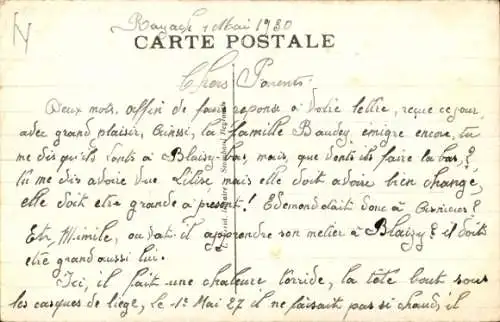 Rayack 1 Mai 1930
CARTE POSTALE
Chers Parents.
Deux mots, affin de faire reponse a votre lettre, reçue ce jour,
avec grand plaisir. Ainssi, la famille Baudey, emigre encore, tu
me dis qu'ils sonts à Blaisy-bas, mais, que vents ils faire la bas,?
Tu me dis avoire vue Lilise mais elle doit avoire bien changé,
elle doit etre grande a present! Edemond etait donc à
Et, Mimile, ou va t'il apprendre son metier à Blaizy? il doit
etre grand aussi lui.
Ici, il fait une chaleure torride, la tête bout sous
les casques de liege, le 1e Mai 27 il ne faisait pas si chaud, il